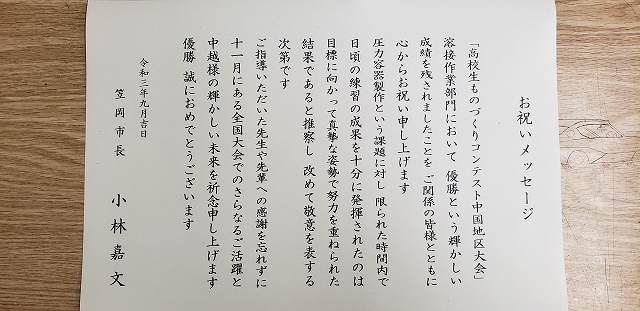 お祝いメッセージ
「高校生ものづくりコンテスト中国地区大会」
溶接作業部門において 優勝という輝かしい
成績を残されましたことを ご関係の皆様とともに
心からお祝い申し上げます
圧力容器製作という課題に対し 限られた時間内で
日頃の練習の成果を十分に発揮されたのは
目標に向かって真摯な姿勢で努力を重ねられた
結果であると推察し 改めて敬意を表する
次第です
ご指導いただいた先生や先輩への感謝を忘れずに
十一月にある全国大会でのさらなるご活躍と
中越様の輝かしい未来を祈念申し上げます
優勝 誠におめでとうございます
令和三年九月吉日
笠岡市長 小林嘉文